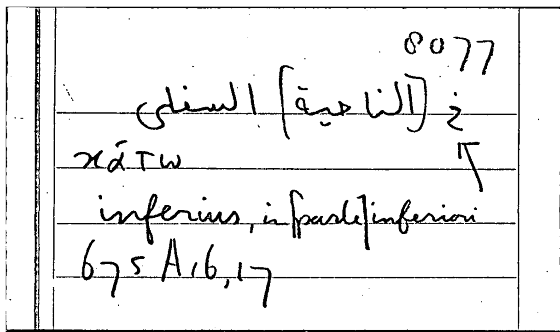 8077
في [الناحية] السفلى
κάτω
inferius, in [parte] inferiori
675 A 16, 17